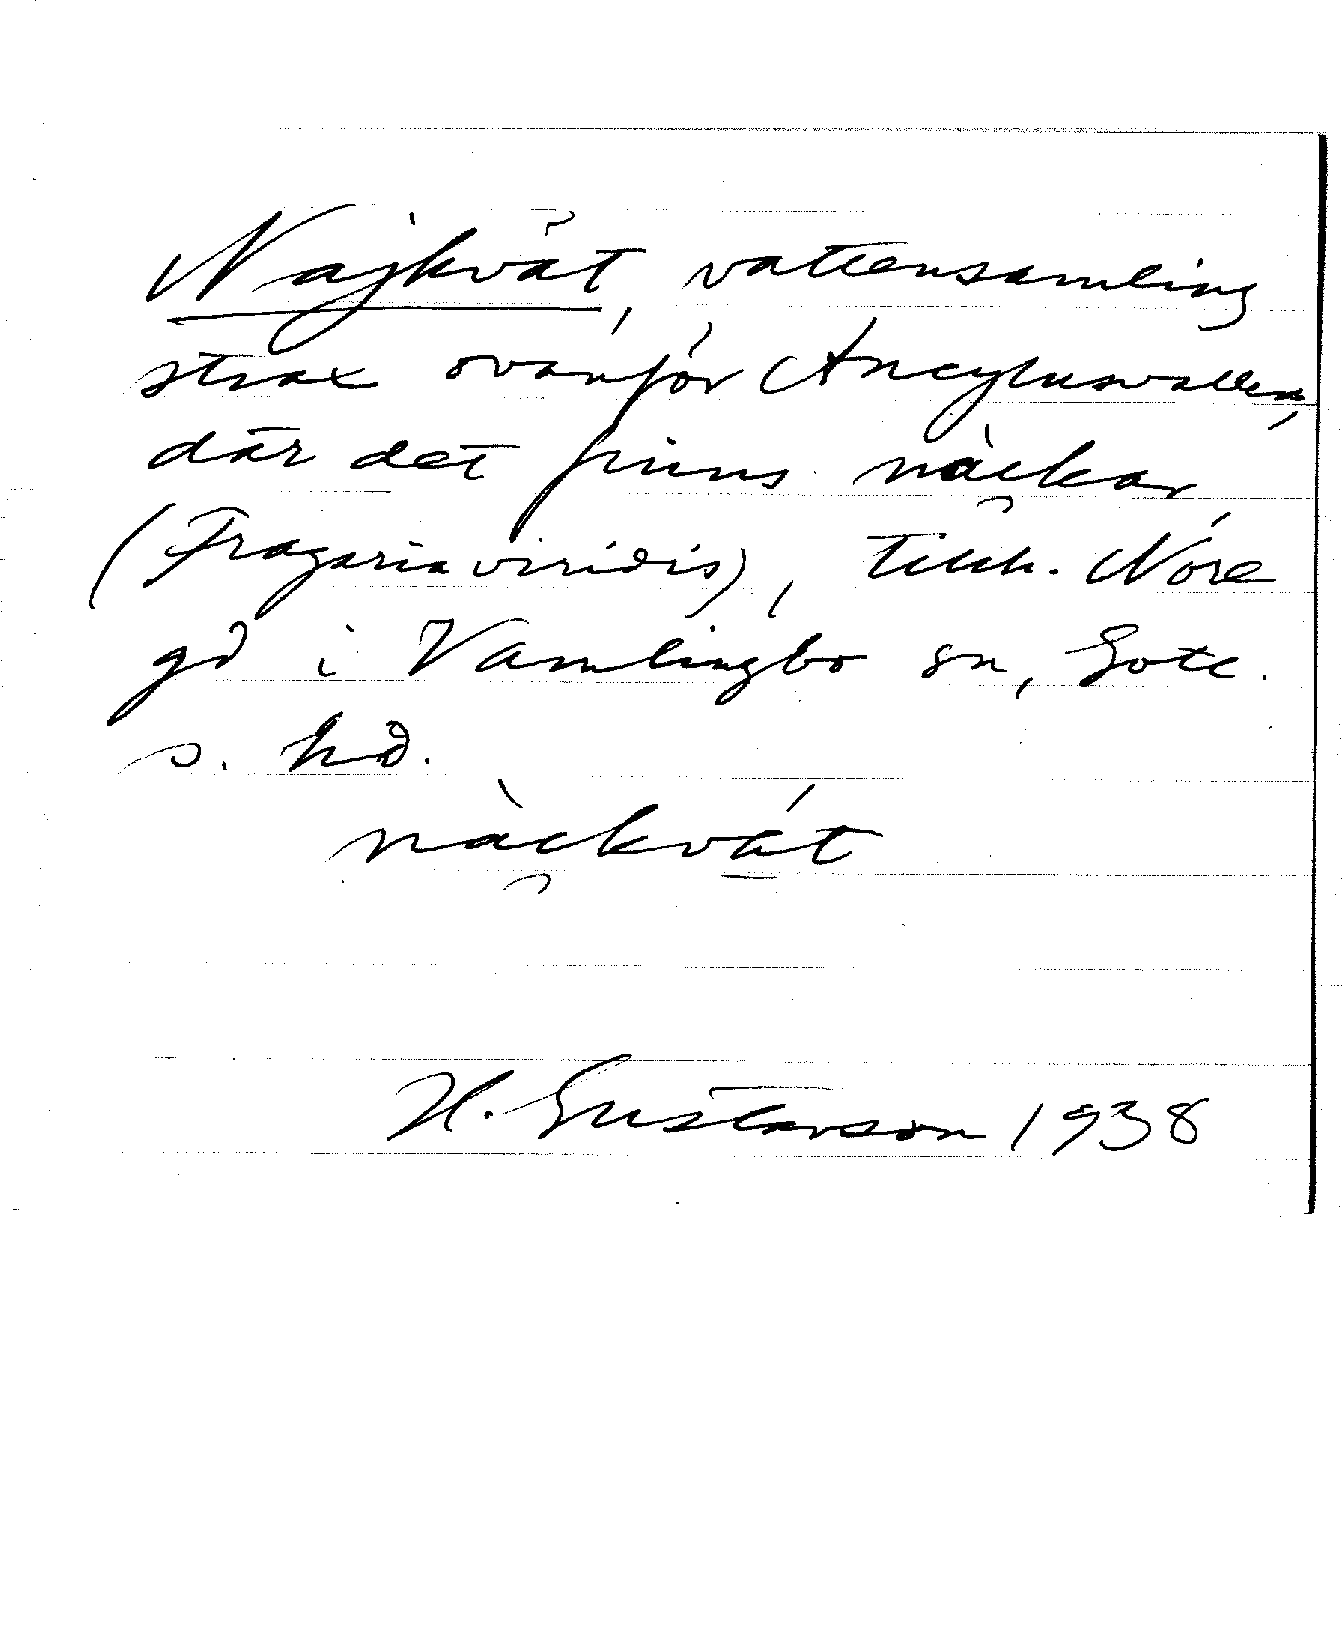 Najkvåt, vattensamling
strax ovanför Ancylusvallen,
där det finns näckar
(Fragaria viridis), tillh. Nore
gd i Vamlingbo sn, Gotl.
s. hd.
nàckvát
H. Gustavson 1938